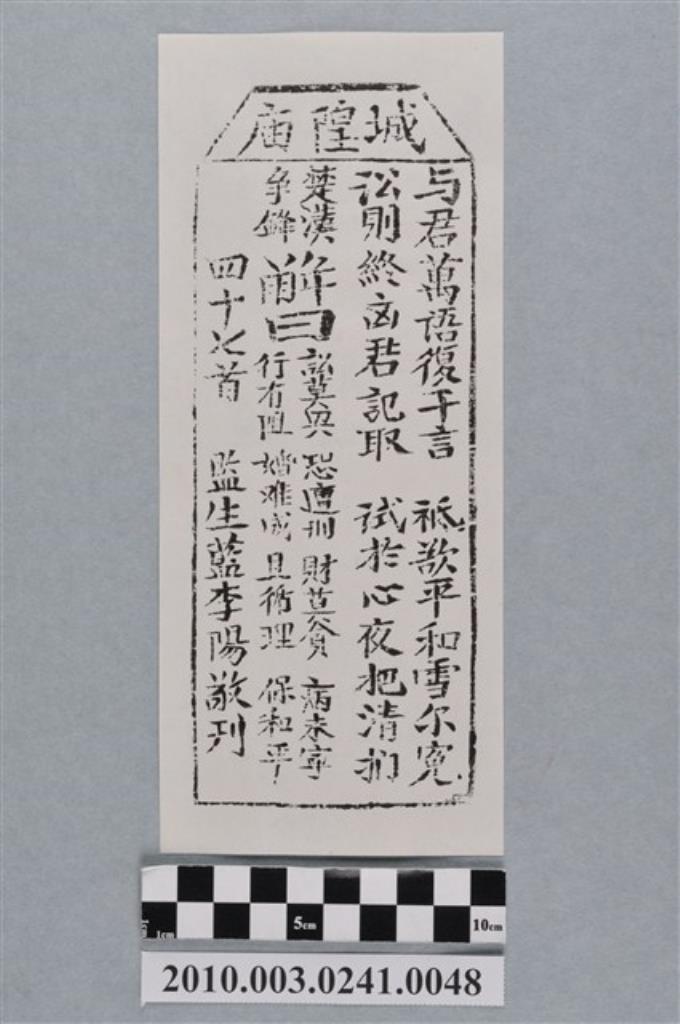 城隍庙
与君萬語復千言 祗欲平和雪尔寃
讼則終凶君記取 试於心夜把清捫
楚漢争鋒
解曰
訟莫興 恐遭刑 財莫貪 病未寧
行有阻 婚难成 且循理 保和平
四十七首 監生藍李陽敬刊
1cm 5cm 10cm
2010.003.0241.0048